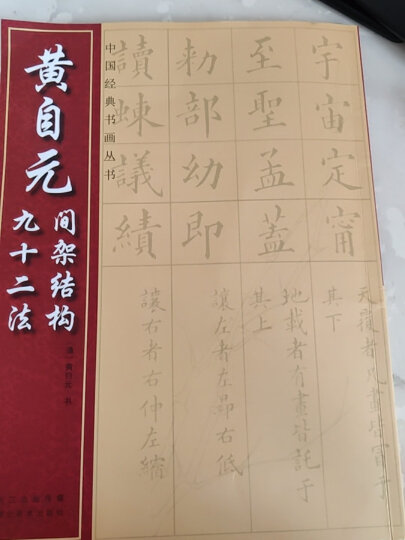 黄自元
间架结构
九十二法
中国经典书画丛书
宇宙定甯
天覆者凡畫皆冒于
其下
至聖孟蓋
地載者有畫皆託于
其上
勅部幼即
讓左者左昂右低
讀議績
讓右者右伸左縮